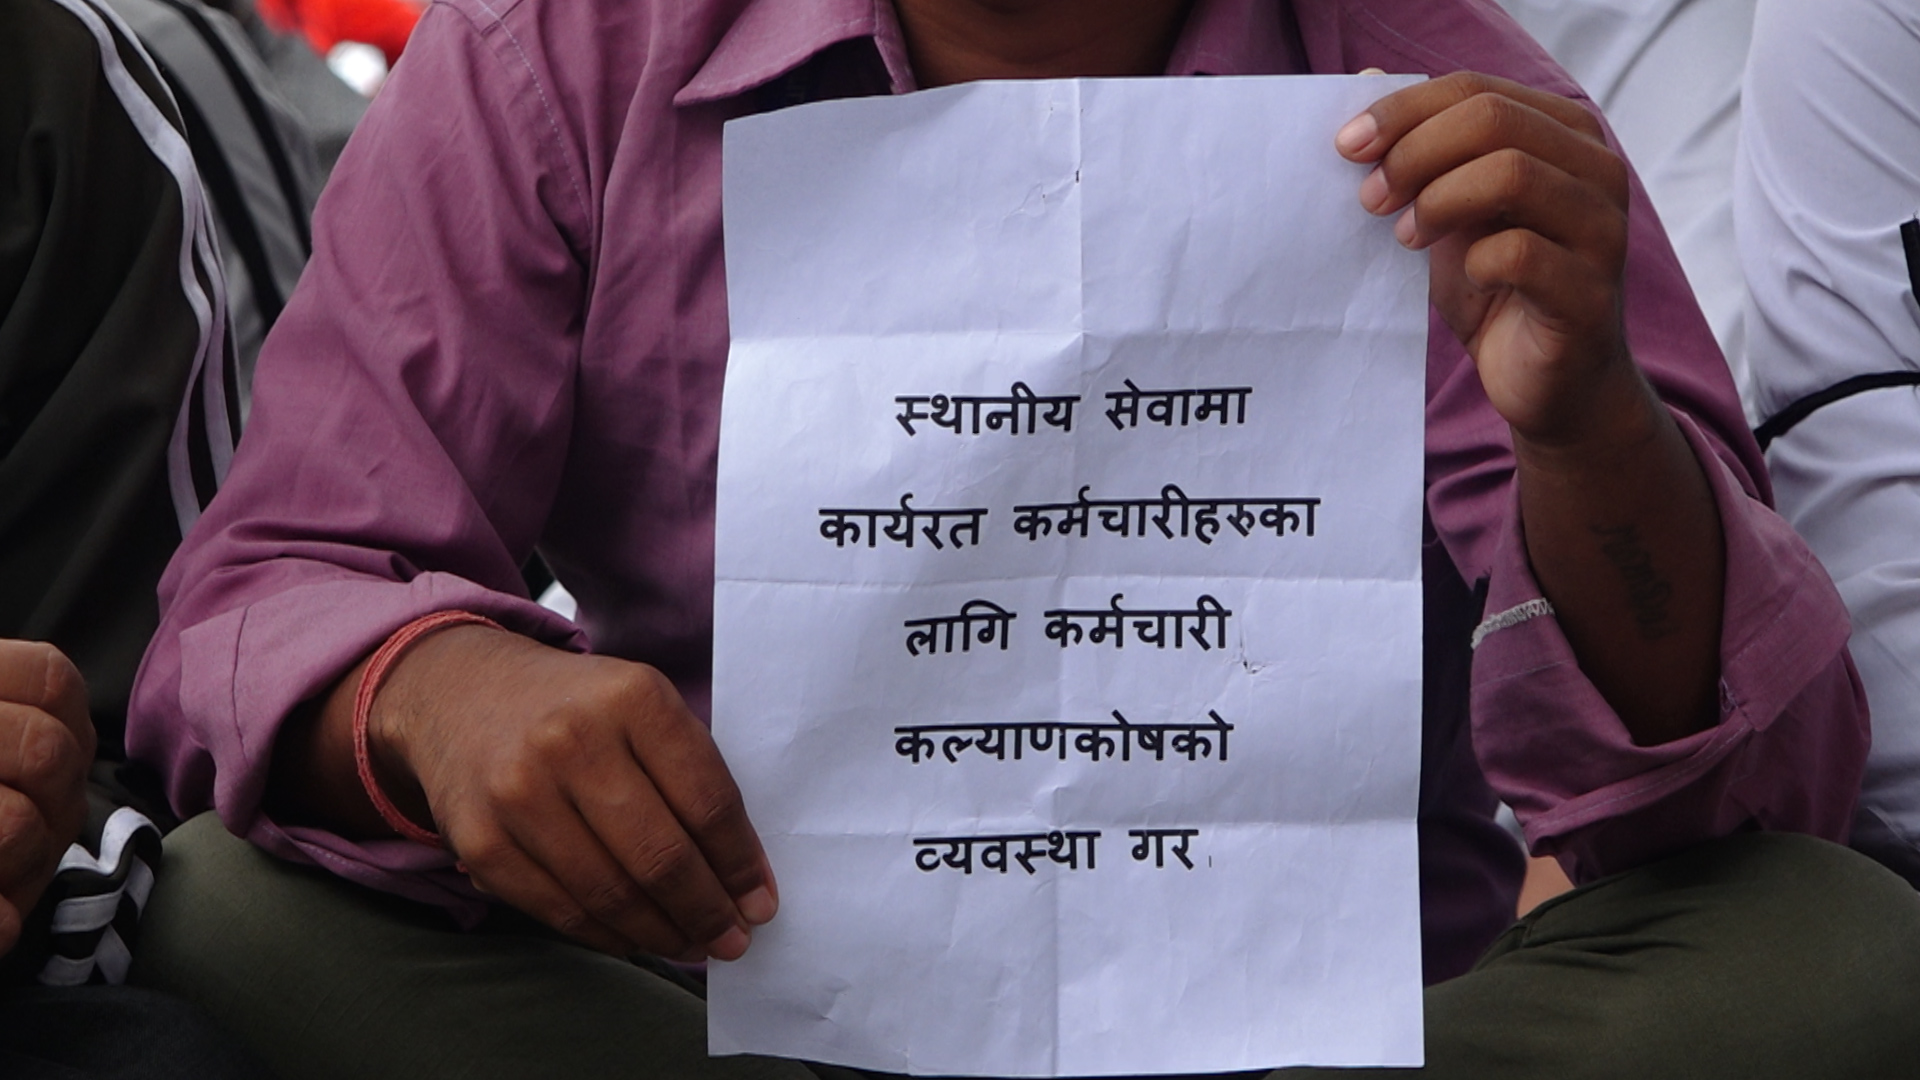 स्थानीय सेवामा
कार्यरत कर्मचारीहरुका
लागि कर्मचारी
कल्याणकोषको
व्यवस्था गर।